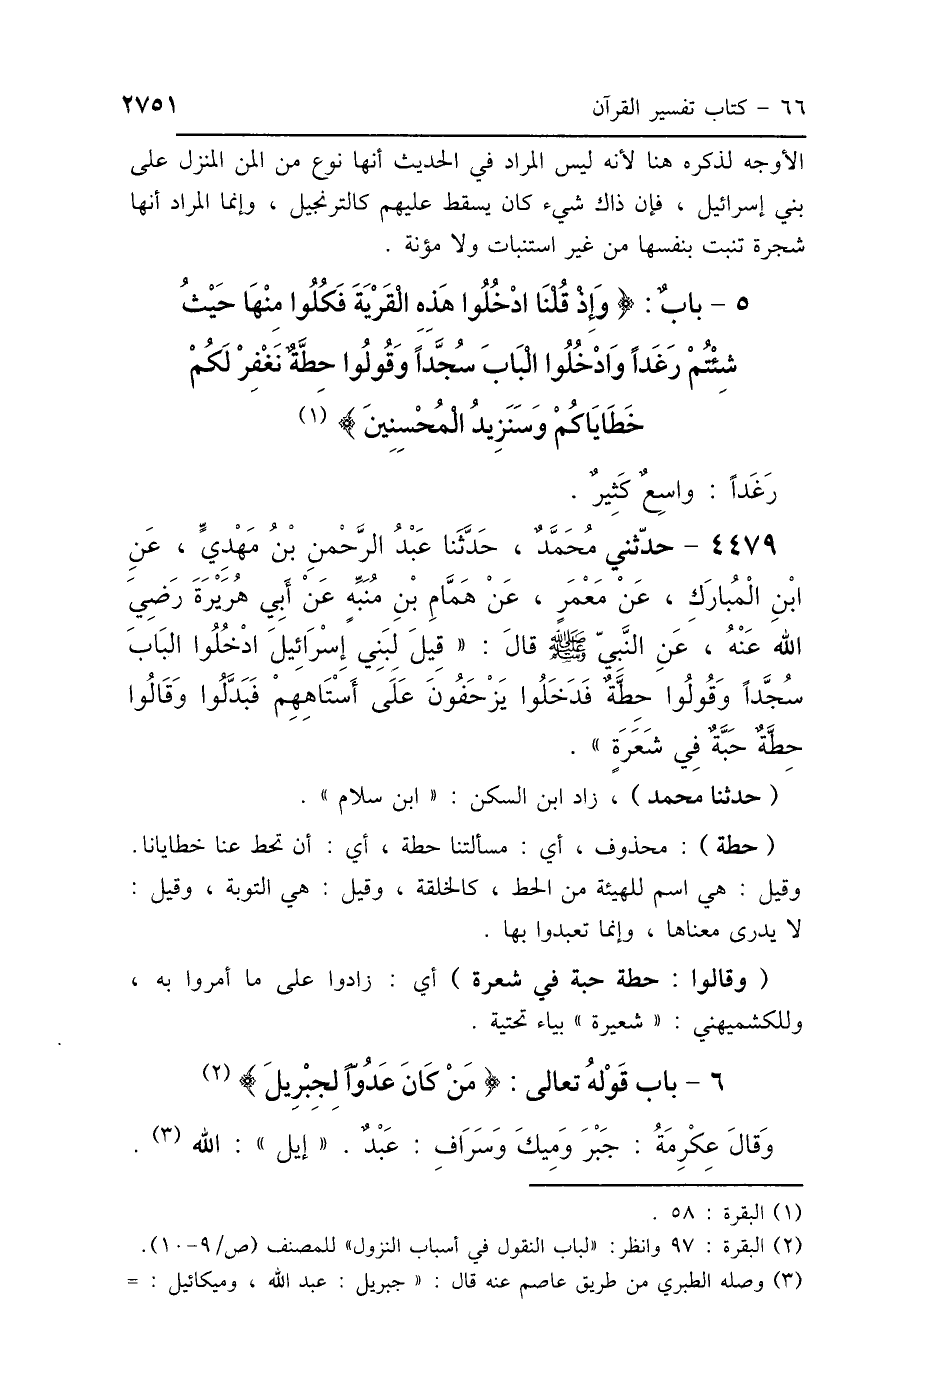 ٦٦ - كتاب تفسير القرآن ٢٧٥١
الأوجه لذكره هنا لأنه ليس المراد في الحديث أنها نوع من المن المنزل على
بني إسرائيل ، فإن ذاك شيء كان يسقط عليهم كالترنجيل ، وإنما المراد أنها
شجرة تنبت بنفسها من غير استنبات ولا مؤنة .
٥ - بابٌ : ﴿ وَإِذْ قُلْنَا ادْخُلُوا هَذِهِ الْقَرْيَةَ فَكُلُوا مِنْهَا حَيْثُ
شِئْتُمْ رَغَداً وَادْخُلُوا الْبَابَ سُجَّداً وَقُولُوا حِطَّةٌ نَغْفِرْ لَكُمْ
خَطَايَاكُمْ وَسَنَزِيدُ الْمُحْسِنِينَ ﴾ (١)
رَغَداً : واسِعٌ كَثِيرٌ .
٤٤٧٩ - حدّثني مُحَمَّدٌ ، حَدَّثَنا عَبْدُ الرَّحْمنِ بْنُ مَهْدِيٍّ ، عَنِ
ابْنِ الْمُبارَكِ ، عَنْ مَعْمَرٍ ، عَنْ هَمَّامِ بْنِ مُنَبِّهٍ عَنْ أَبِي هُرَيْرَةَ رَضِيَ
الله عَنْهُ ، عَنِ النَّبِيِّ ﷺ قالَ : « قِيلَ لِبَنِي إِسْرَائِيلَ ادْخُلُوا البَابَ
سُجَّداً وَقُولُوا حِطَّةٌ فَدَخَلُوا يَزْحَفُونَ عَلَى أَسْتَاهِهِمْ فَبَدَّلُوا وَقَالُوا
حِطَّةٌ حَبَّةٌ فِي شَعَرَةٍ » .
( حدثنا محمد ) ، زاد ابن السكن : « ابن سلام » .
( حطة ) : محذوف ، أي : مسألتنا حطة ، أي : أن تحط عنا خطايانا.
وقيل : هي اسم للهيئة من الحط ، كالخلقة ، وقيل : هي التوبة ، وقيل :
لا يدرى معناها ، وإنما تعبدوا بها .
( وقالوا : حطة حبة في شعرة ) أي : زادوا على ما أمروا به ،
وللكشميهني : « شعيرة » بياء تحتية .
٦ - باب قَوْلهُ تعالى : ﴿ مَنْ كَانَ عَدُوّاً لِجِبْرِيلَ ﴾ (٢)
وَقالَ عِكْرِمَةُ : جَبْرَ وَمِيكَ وَسَرَافِ : عَبْدٌ . « إيل » : الله (٣) .
(١) البقرة : ٥٨ .
(٢) البقرة : ٩٧ وانظر: «لباب النقول في أسباب النزول» للمصنف (ص/٩-١٠).
(٣) وصله الطبري من طريق عاصم عنه قال : « جبريل : عبد الله ، وميكائيل : =